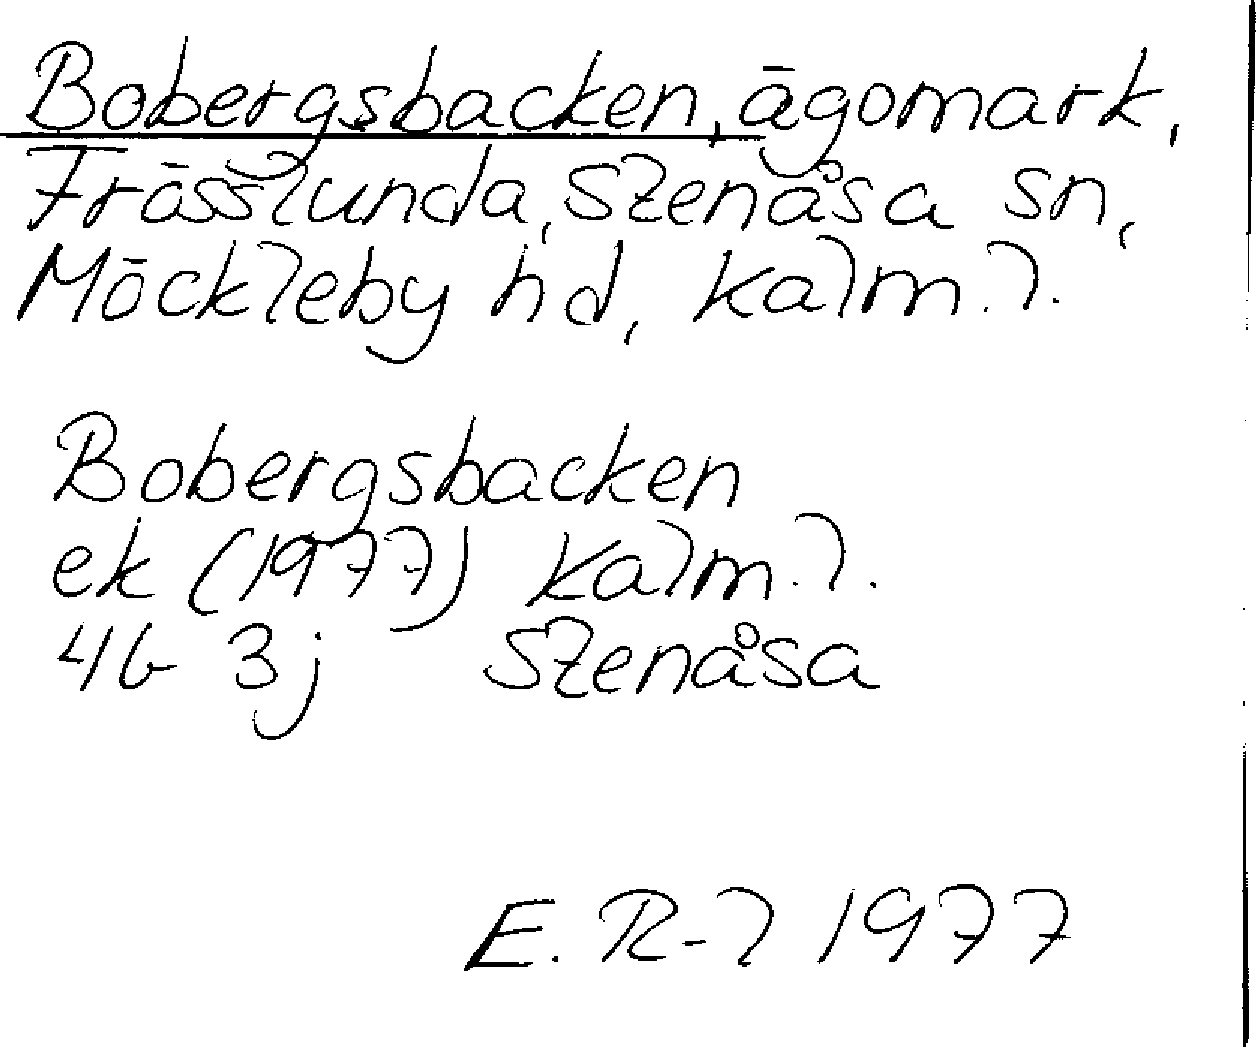 Bobergsbacken, ägomark,
Frösslunda, Stenåsa sn,
Möckleby hd, Kalm. l.
Bobergsbacken
ek (1977) Kalm. l.
4G 3j Stenåsa
E. R-l 1977